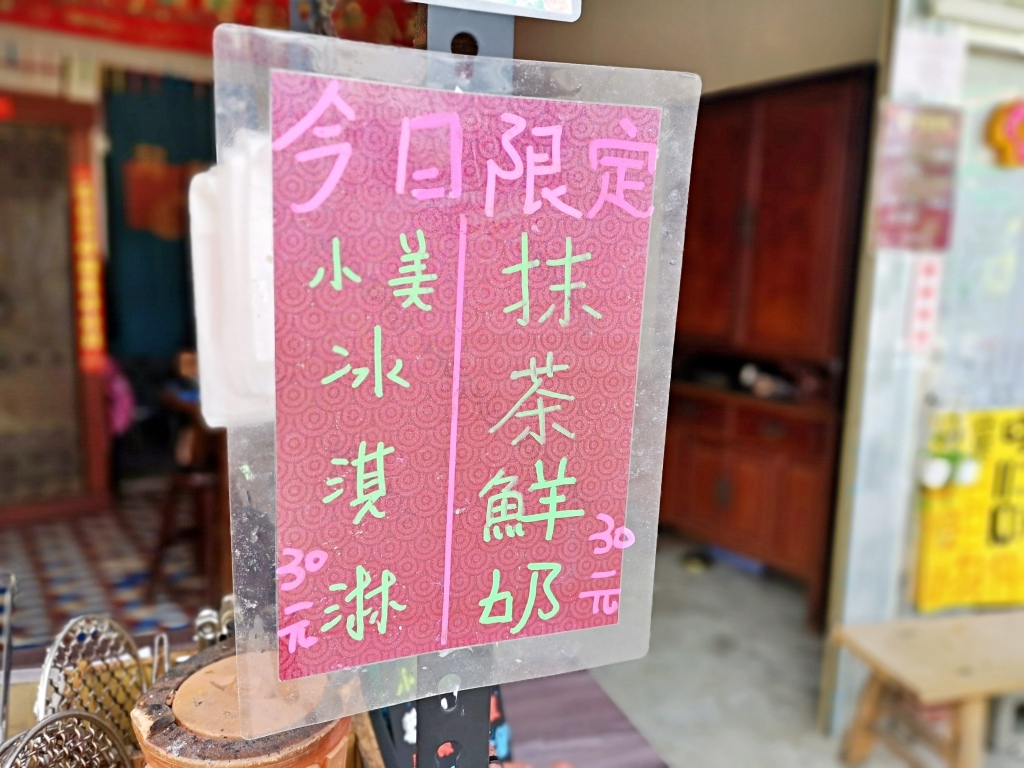 今日限定
抹茶鮮奶
30元
小美
冰淇淋
30元